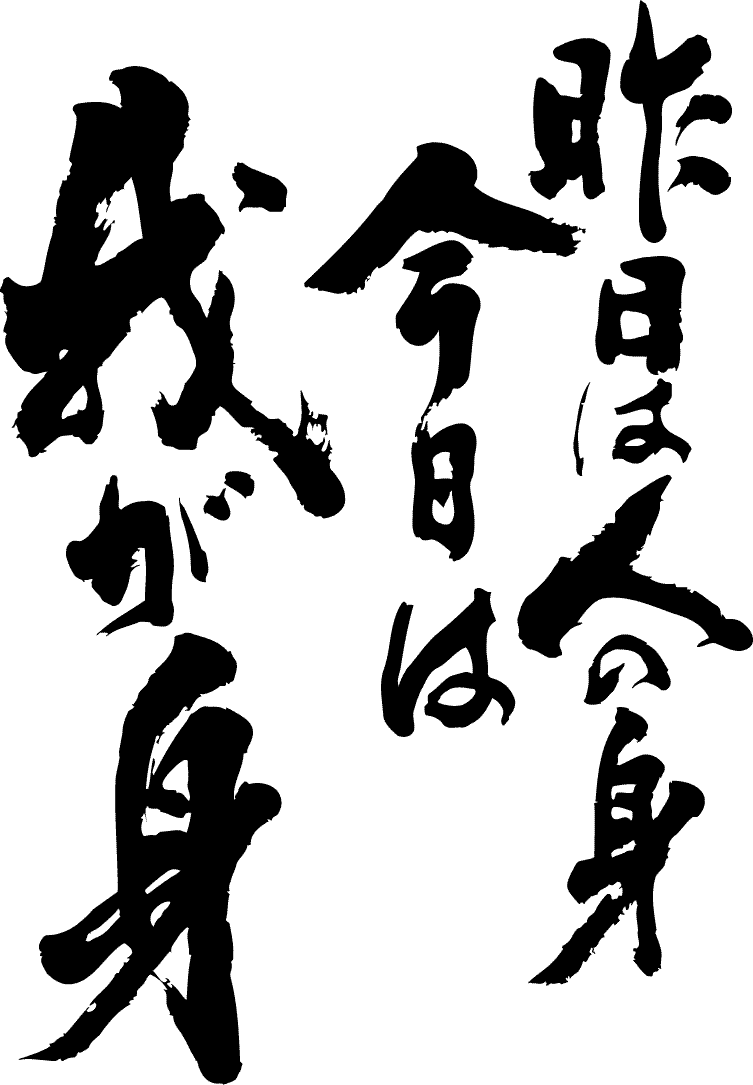 昨日は人の身
今日は
我が身